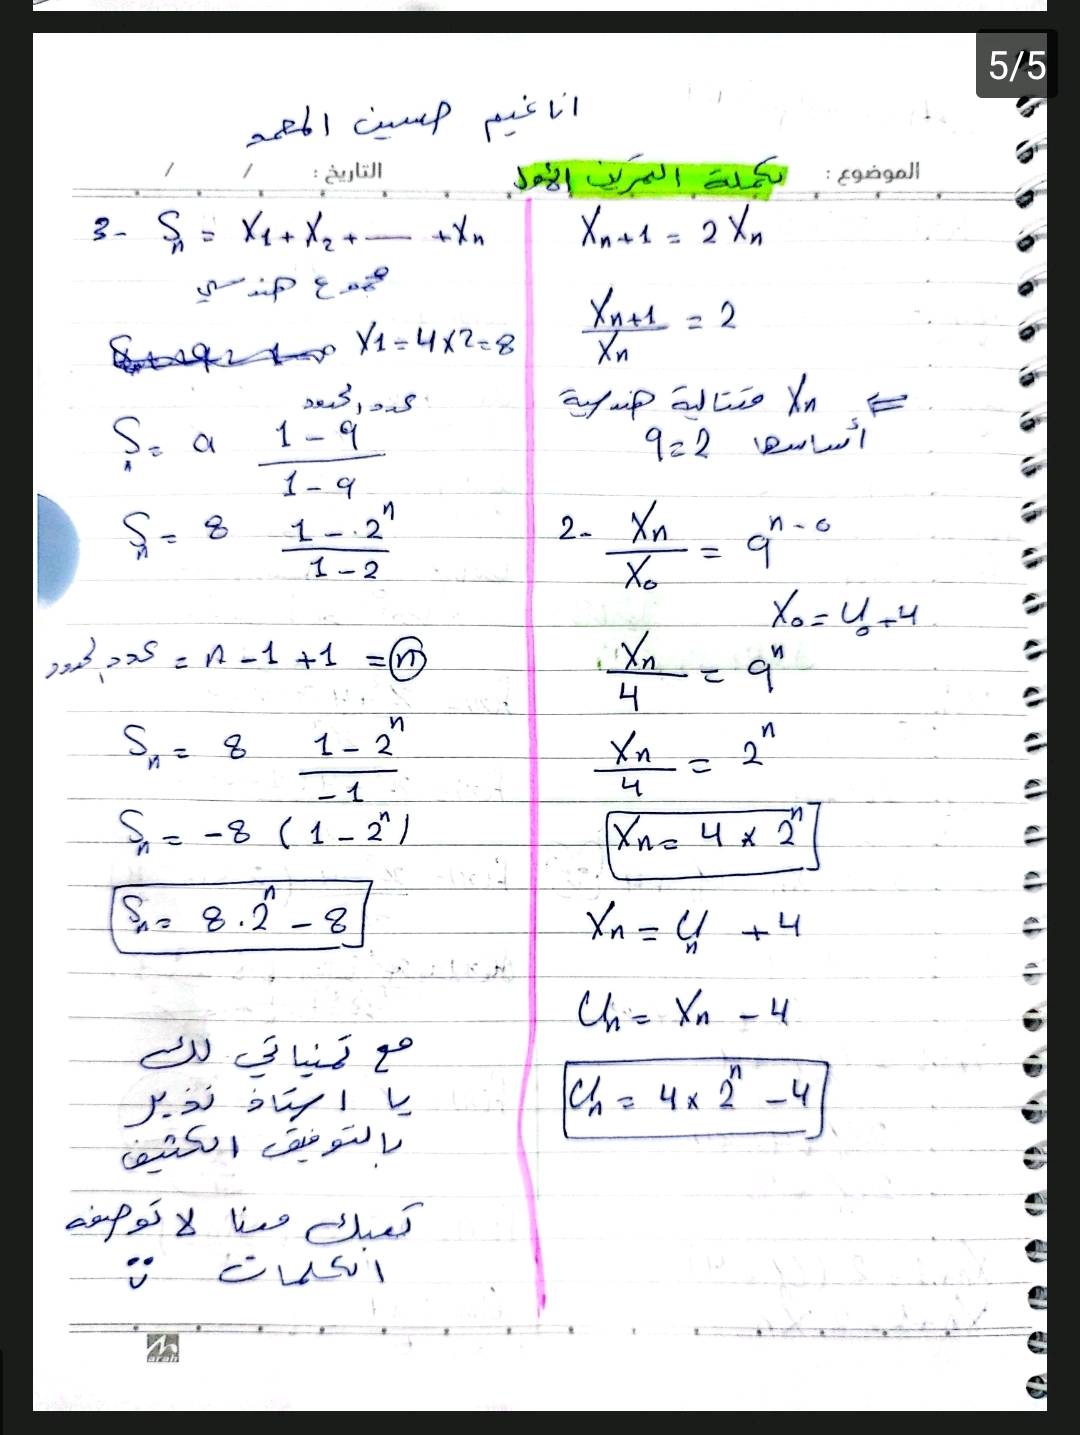 5/5
انا غيم حسين المحمد
الموضوع : تكملة التمرين الأول التاريخ : / /
Xn+1 = 2Xn
Xn+1/Xn = 2
⇐ Xn متتالية هندسية
أساسها q=2
2- Xn/X0 = q^n-0
X0 = U0+4
Xn/4 = q^n
Xn/4 = 2^n
Xn = 4 × 2^n
Xn = Un + 4
Un = Xn - 4
Un = 4 × 2^n - 4
3- Sn = X1 + X2 + — + Xn
مجموع هندسي
X1 = 4×2 = 8
عدد الحدود
Sn = a 1-q/1-q
Sn = 8 1-2^n/1-2
عدد الحدود = n-1+1 = n
Sn = 8 1-2^n/-1
Sn = -8 (1-2^n)
Sn = 8.2^n - 8
مع تمنياتي لك
يا استاذ نذير
بالتوفيق الكثيف
تعبك معنا لا توصفه
الكلمات
arab